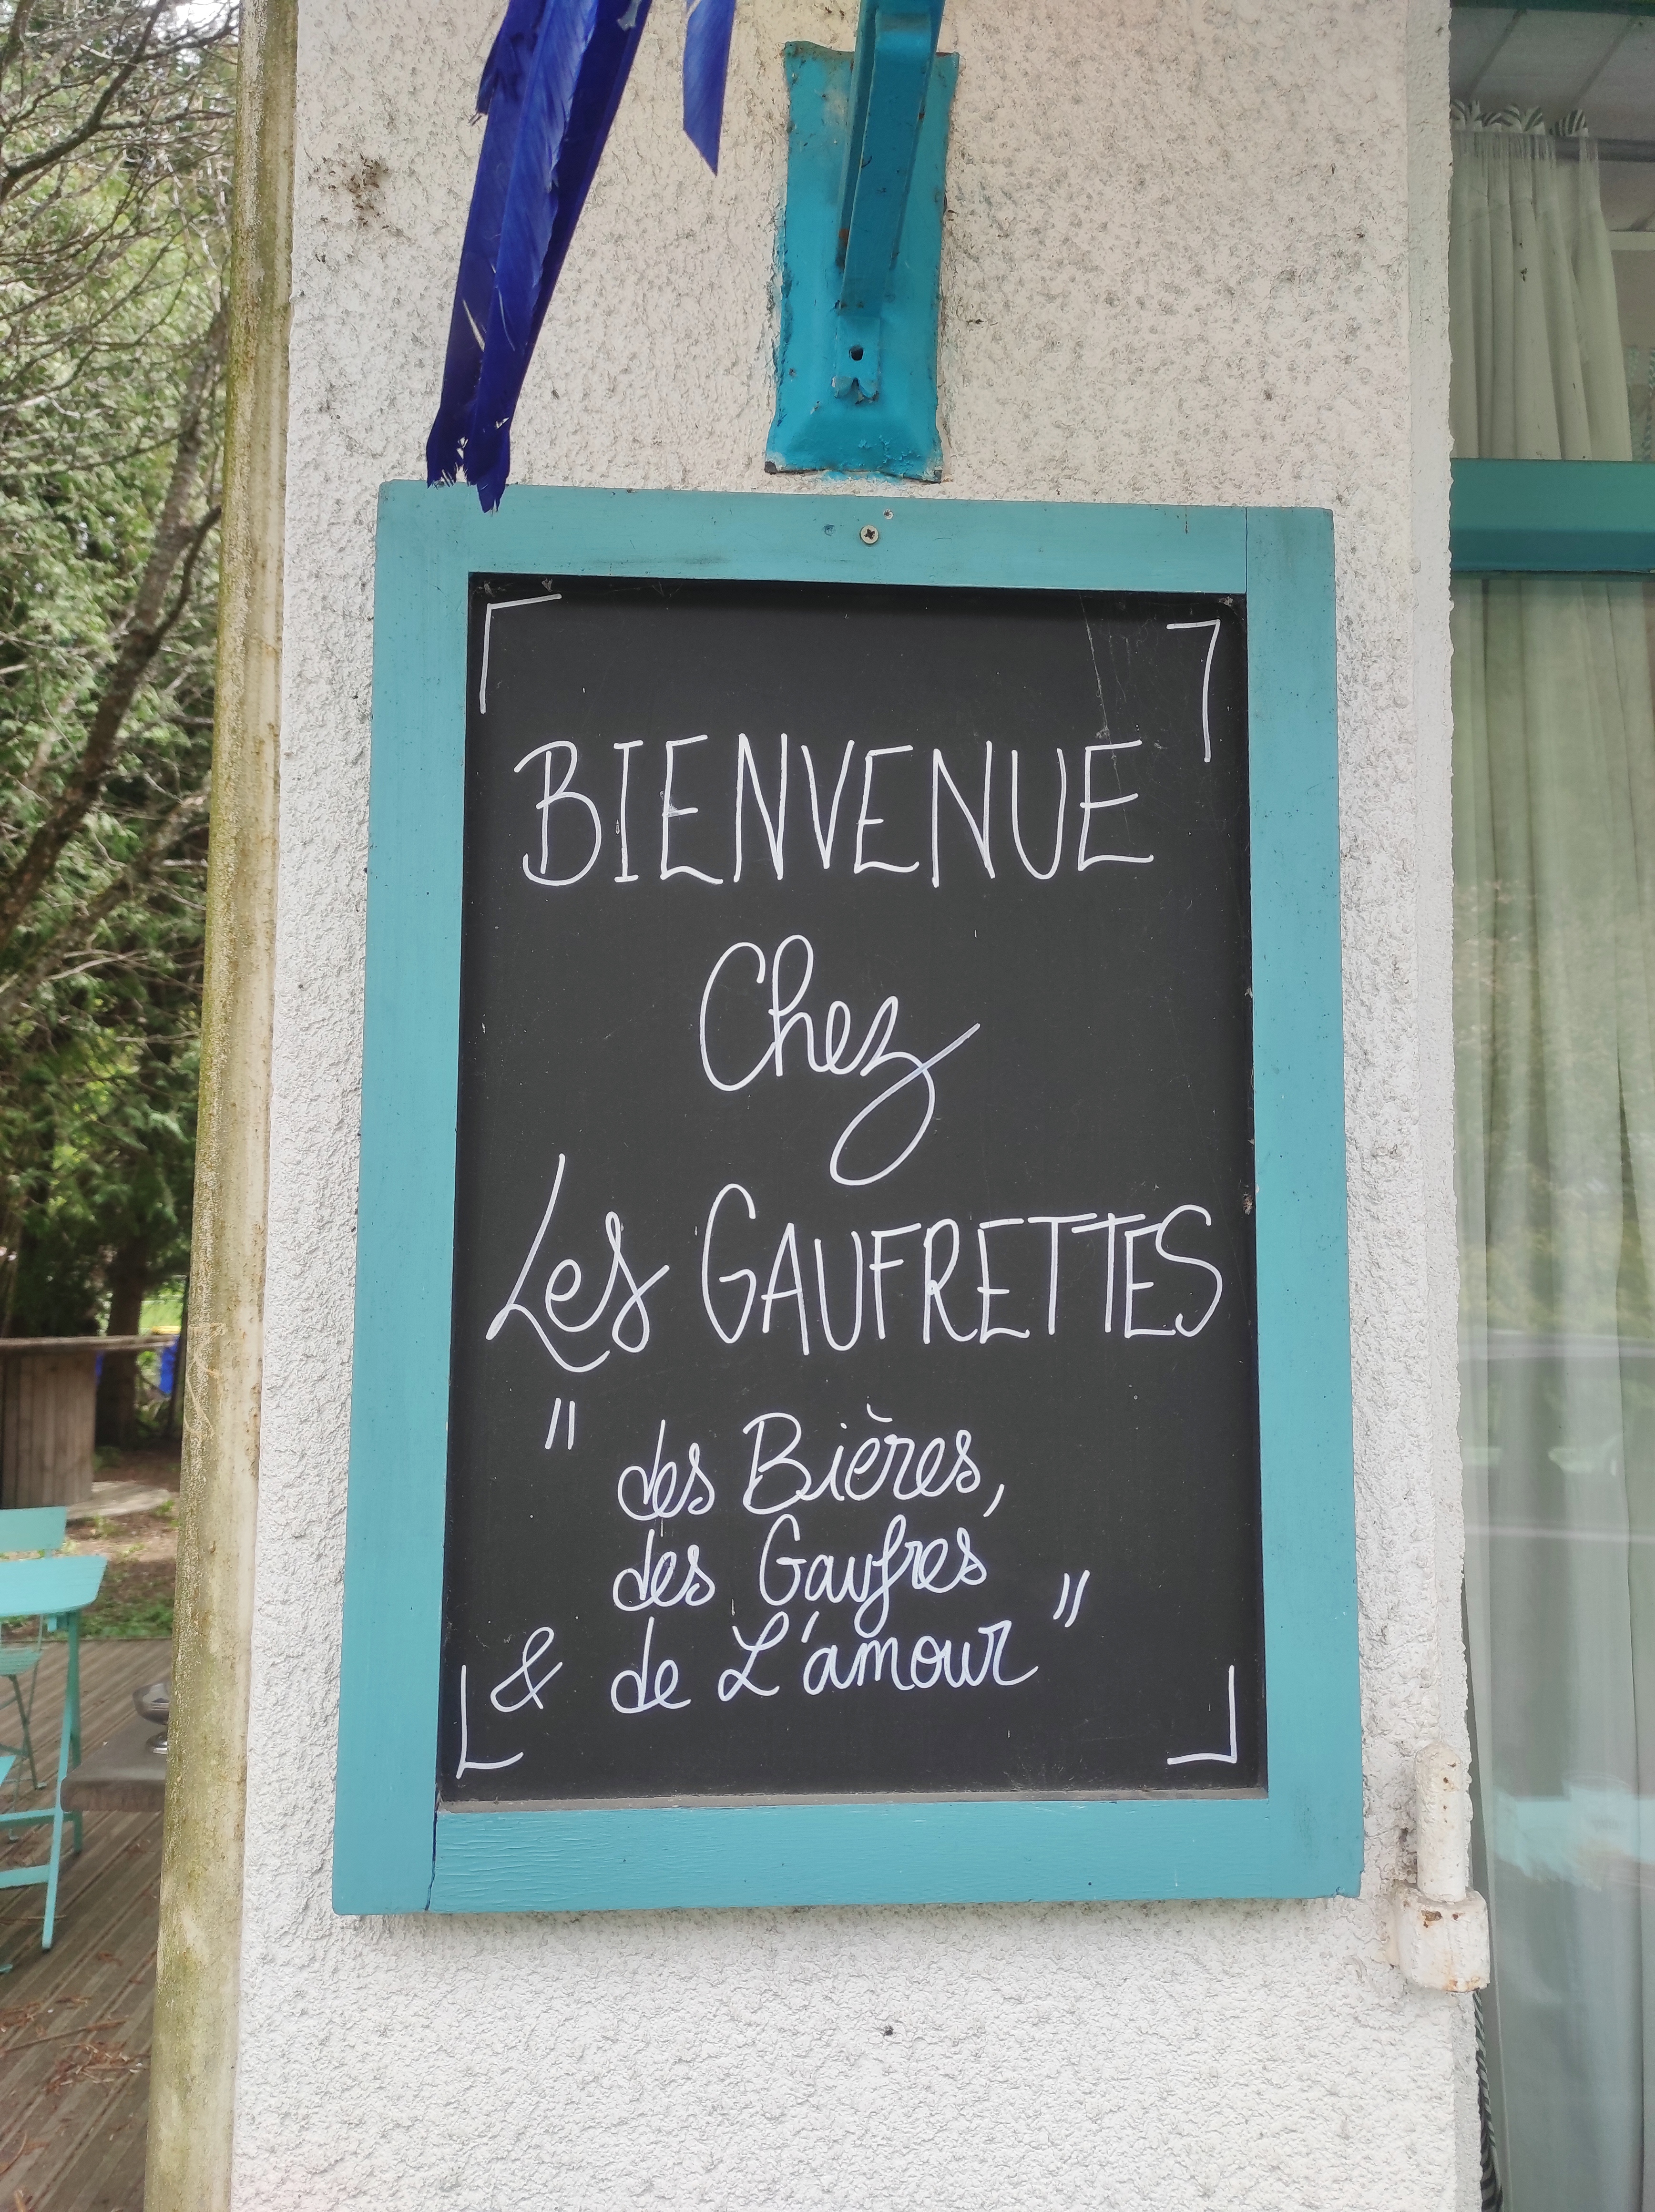 BIENVENUE
Chez
Les GAUFRETTES
" des Bières,
des Gaufres
& de L'amour "